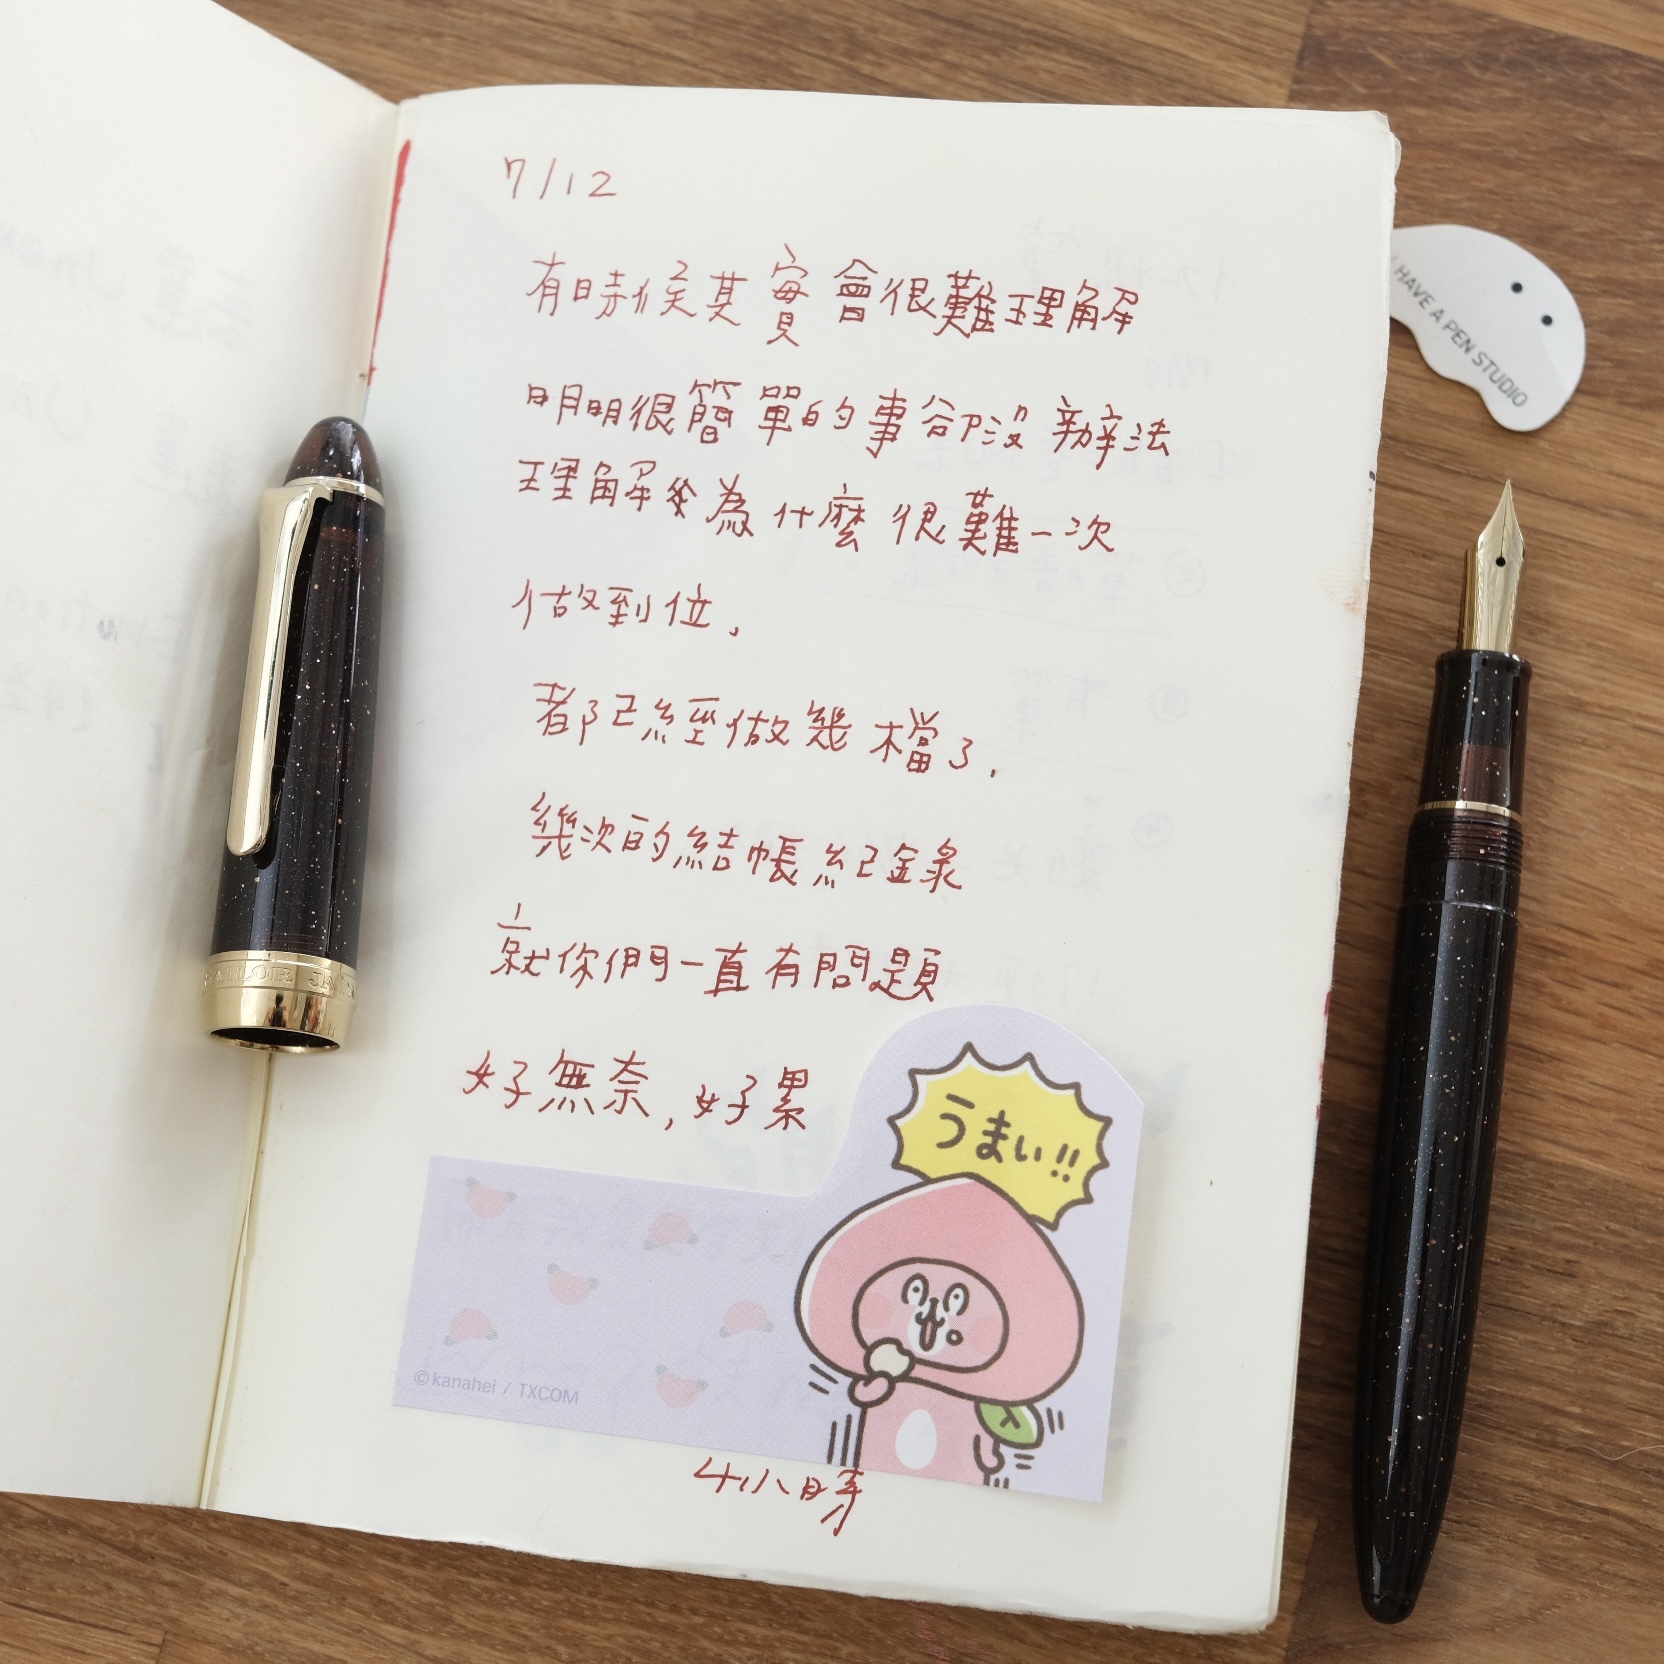 7/12
有時候其實會很難理解
明明很簡單的事卻沒辦法
理解後為什麼很難一次
做到位,
都已經做幾檔了.
幾次的結帳紀錄
就你們一直有問題
好無奈,好累
うまい!!
©kanahei / TXCOM
4小時
I HAVE A PEN STUDIO
SAILOR JAPAN